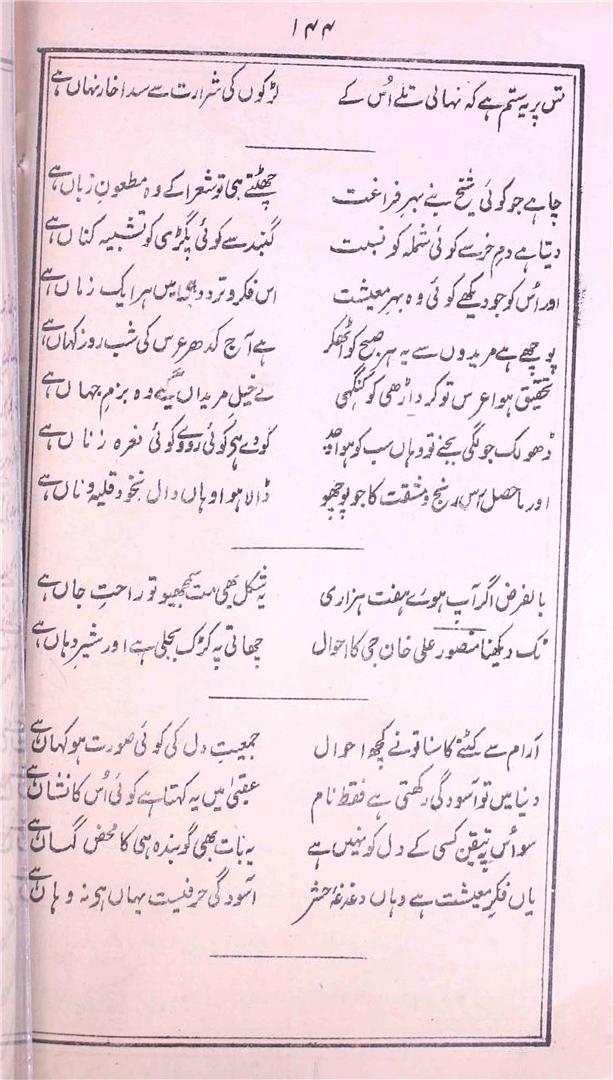 ۱۴۴
تس پر یہ ستم ہے کہ نہالی تلے اُس کے لڑکوں کی شرارت سے سدا خار نہاں ہے
چاہے جو کوئی شیخ بنے بہرِ فراغت چھٹتے ہی تو شعرا کے وہ مطعونِ زباں ہے
دیتا ہے دمِ خر سے کوئی شملہ کو نسبت گنبد سے کوئی پگڑی کو تشبیہ کناں ہے
اور اُس کو جو دیکھے کوئی وہ بہرِ معیشت اس فکر و تردد میں ہر ایک زماں ہے
پوچھے ہے مریدوں سے یہ ہر صبح کو اٹھکر ہے آج کدھر عرس کی شب روز کہاں ہے
تحقیق ہوا عرس تو کر داڑھی کو کنگھی لے خیلِ مریداں گئے وہ بزم جہاں ہے
ڈھولک جو لگی بجنے تو وہاں سب کو ہوا وجد کودے ہے کوئی رووے کوئی نعرہ زناں ہے
اور ماحصل اس رنج و مشقت کا جو پوچھو ڈالا ہوا وہاں دال نخود قلیہ و ناں ہے
بالفرض اگر آپ ہوئے ہفت ہزاری یہ شکل بھی مت سمجھیو تو راحتِ جاں ہے
تک دیکھنا منصور علی خان جی کا احوال چھاتی پہ کڑک بجلی ہے اور شیر دہاں ہے
آرام سے کٹنے کا سنا تونے کچھ احوال جمعیتِ دل کی کوئی صورت ہو کہاں ہے
دنیا میں تو آسودگی رکھتی ہے فقط نام عقبیٰ میں یہ کہتا ہے کوئی اُس کا نشاں ہے
سو اُس پہ تیقن کسی کے دل کو نہیں ہے یہ بات بھی گویندہ ہی کا محض گماں ہے
یاں فکرِ معیشت ہے وہاں دغدغۂ حشر آسودگی حرفیست یہاں ہی نہ وہاں ہے